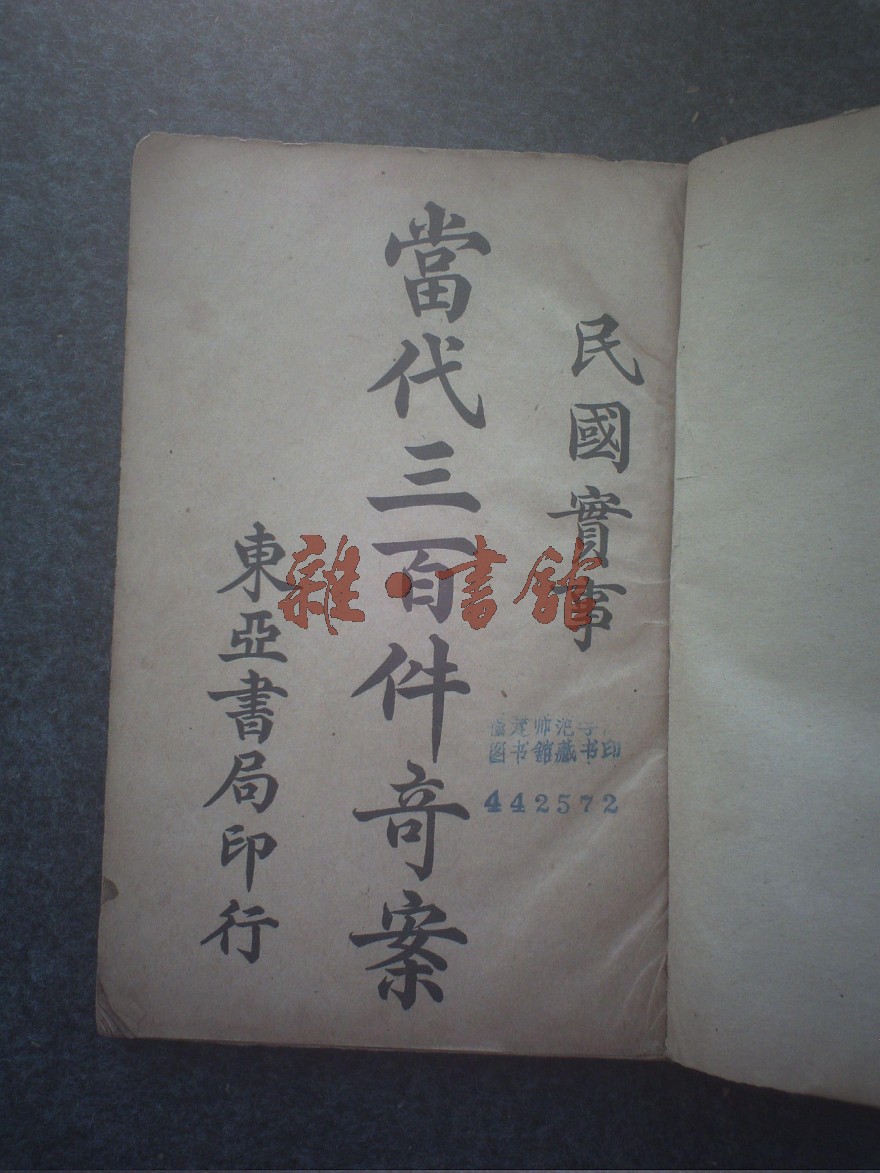 民國實事
當代三百件竒案
東亞書局印行
雜·書舘
师范
图书館藏书印
442572